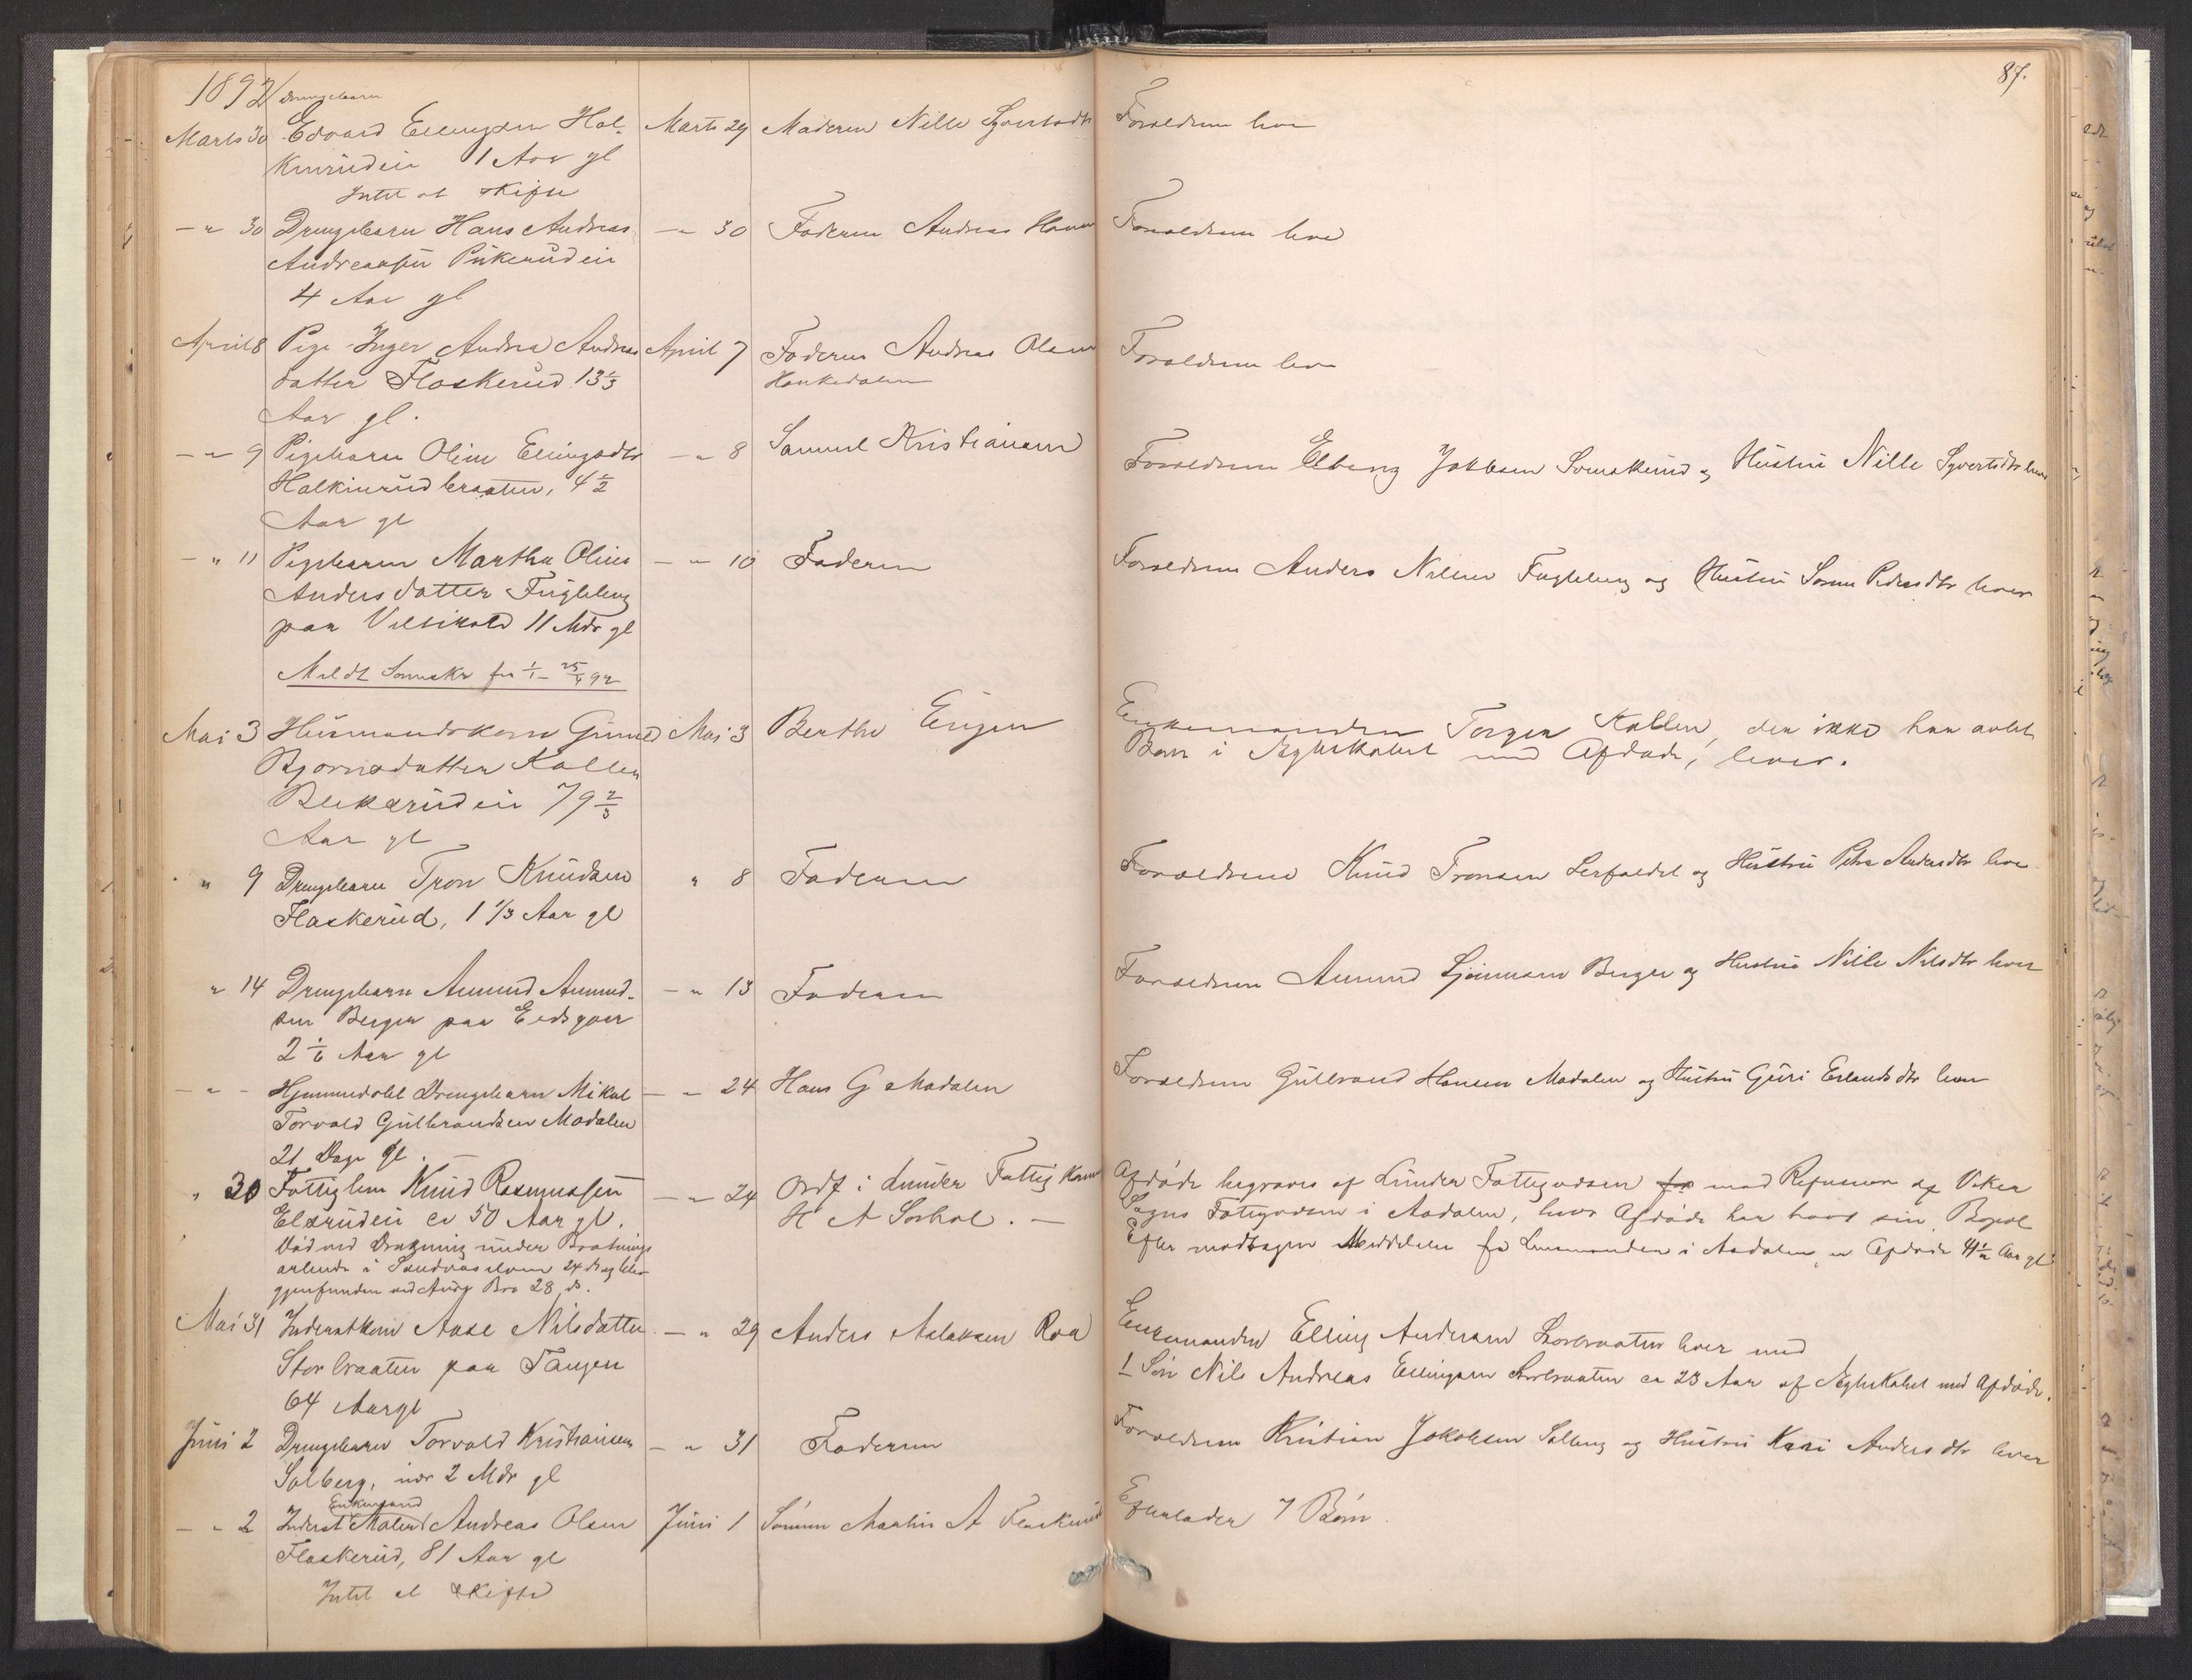 87.
1892
Drengebarn
Marts 30 Edvard Ellingsen Hal- Marts 29 Moderen Nille Syvertsdtr Foreldrene lever
kinrudeie 1 Aar gl
Intet at skifte
— " 30 Drengebarn Hans Andreas — " 30 Faderen Andreas Foreldrene lever
Andreassen Pukerudeie
4 Aar gl
April 8 Pige Inger Andrea Andreas April 7 Faderen Andreas Olsen Foreldrene lever
datter Flaskerud 13⅓ Haukedalen
Aar gl.
— " 9 Pigebarn Oline Ellingsdtr — " 8 Samuel Kristiansen Foreldrene Elling Jakobsen og Hustru Nille Syvertsdtr lever
Halkinrudbraaten, 4½
Aar gl
— " 11 Pigebarn Martha Oline — " 10 Faderen Foreldrene Anders Nilsen Fugleberg og Hustru Pedersdtr lever
Andersdatter Fugleberg
paa 11 Mdr gl
Meldt Sorenskr fra 1/1 – 25/4 92
Mai 3 Husmandskone Gunild Mai 3 Berthe Engen Enkemanden Torger Kollen, der ikke har avlet
Bjørnsdatter Kollen Børn i Ægteskabet med Afdøde, lever.
79⅔
Aar gl
" 9 Drengebarn Tron Knudsen " 8 Faderen Foreldrene Knud Tronsen og Hustru Andersdtr lever
Flaskerud, 1 1/3 Aar gl
" 14 Drengebarn Amund Amund- — " 13 Faderen Foreldrene Amund Berger og Hustru Nille Nilsdtr lever
sen Berger paa
2 1/6 Aar gl
— " - Hjemmedøbt Drengebarn Mikal — " 24 Hans G Modalen Foreldrene Gulbrand Hansen Modalen og Hustru Guri Erlandsdtr lever
Torvald Gulbrandsen Modalen
21 Dage gl.
" 30 Fattiglem Knud Rasmussen — " 24 Ordf i Lunder Fattigkom Afdøde begraves af Lunder Fattigvæsen med Refusion af Viker
Elsrudeie ca 50 Aar gl. H A Sørhol. — Sogns Fattigvæsen i Aadalen, hvor Afdøde har havt sin Bopæl
Død ved Drukning under Brøtnings Efter modtagen Meddelelse fra Lensmanden i Aadalen er Afdøde 41½ Aar gl
arbeide i 24 ds og blev
gjenfunden ved Bro 28 ds.
Mai 31 Inderstkone Aase Nilsdatter — " 29 Anders Aslaksen Roa Enkemanden Elling Andersen Storbraaten lever med
Storbraaten paa Tangen 1 Søn Nils Andreas Ellingsen Storbraaten ca 23 Aar af Ægteskabet med Afdøde.
64 Aar gl
Juni 2 Drengebarn Torvald Kristiansen — " 31 Faderen Foreldrene Kristian Jakobsen Solberg og Hustru Kari Andersdtr lever
Solberg, 2 Mdr gl
Enkemand
— " 2 Inderst Maler Andreas Olsen Juni 1 Sønnen Martin A Flaskerud Efterlader 7 Børn.
Flaskerud, 81 Aar gl
Intet at skifte